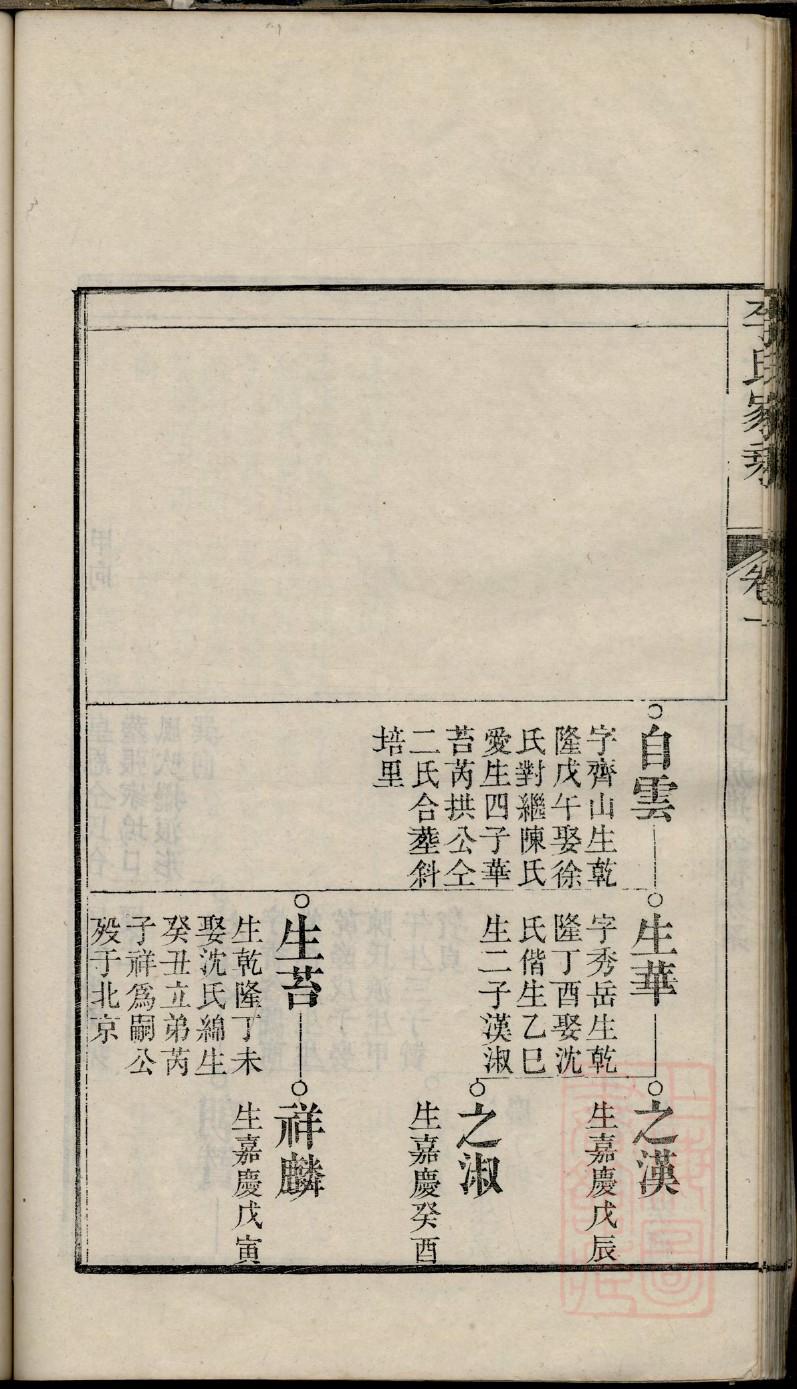 李氏家乘
卷一
自雲
字齊山生乾
隆戊午娶徐
氏對繼陳氏
愛生四子華
苔芮拱公仝
二氏合塟斜
培里
生華
字秀岳生乾
隆丁酉娶沈
氏偕生乙巳
生二子漢淑
生苔
生乾隆丁未
娶沈氏綿生
癸丑立弟芮
子祥爲嗣公
殁于北京
之漢
生嘉慶戊辰
之淑
生嘉慶癸酉
祥麟
生嘉慶戊寅